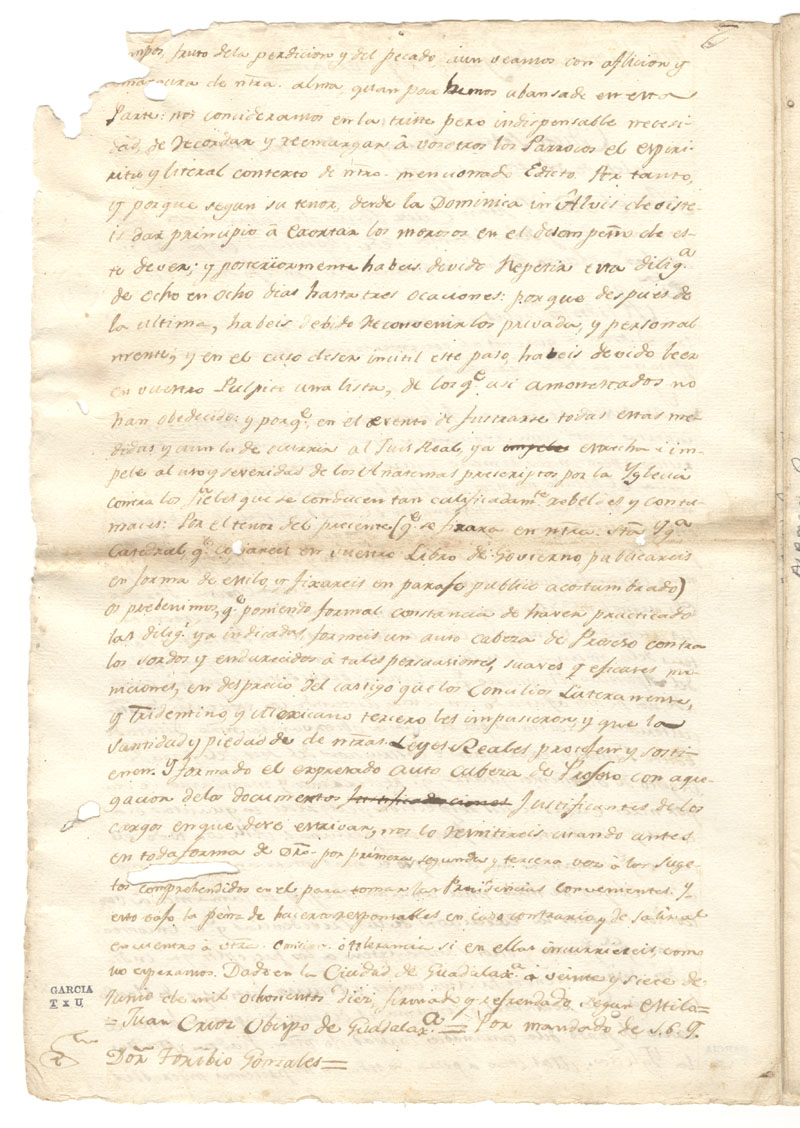 mpos, fruto dela perdicion y del pecado aun veamos con aflicion y
amargura de ntra. alma, quan poco hemos abansado en esta
Parte: nos consideramos en la triste pero indispensable necesi
dad, de recordar y reemcargar â vosotros los Parrocos el espiri
ritu y literal contexto de ntro. mencionado Edicto. Por tanto,
y porque segun su tenor, desde la Dominica in Alvis deviste-
is dar principio â Exortar los morosos en el desempeño de es-
te dever; y posteriormente habeis devido Repetir esta dilig.ª
de ocho en ocho dias hasta tres ocaciones: porque despues de
la ultima, habeis debido Reconvenirlos privada, y personal
mente, y en el caso deser inutil este paso, habeis devido leer
en vuestro Pulpito una lista, de los q.e asi amonestados no
han obedecido: y porq.e en el evento de frustrarse todas estas me-
didas y aun la de ocurrir al Juis Real, ya estrecha i im-
pele al uso y severidad de los Anatemas prescriptos por la Yglecia
contra los fieles que se conducen tan calificadam.te rebeldes y contu-
maces: Por el tenor del preciente (q.e se fixara en ntra. Sta. Yg.ª
Catedral, q.e copiareis en vuestro Libro de Govierno publicareis
en forma de estilo, y fixareis en parafe publico acostumbrado)
os prebenimos, q.e poniendo formal constancia de haver practicado
las dilig.s ya indicadas, formeis un auto cabeza de Proseso contra
los sordos y endurecidos â tales persuaciones, suaves y eficases mo-
niciones, en desprecio del castigo que los Concilios Lateranense,
y Tridentino y Mexicano tercero les impusieron, y que la
Santidad y piedad de de ntras. Leyes Reales protejen y sosti-
enen. Y formado el expresado auto cabeza de Proseso con agre-
gacion delos documentos Justificaciones Justificantes de los
cargos enque deve estrivar, nos lo Remitireis citando antes
en toda forma de Dro. por primera, segunda y tercera ves â los Suge-
tos comprehendidos en el para tomar las Providencias convenientes. Y
esto bajo la pena de haceros responsables en caso contrario y de salir al
encuentro â vtra. omicion ô tolerancia si en ellas incurriereis, como
no esperamos. Dado en la Ciudad de Guadalax.ª a veinte y siete de
Junio de mil ochosientos dies, firmado y refrendado segun estilo=
= Juan Cruz Obispo de Guadalax.ª = Por mandado de S.S.Y.
Don Toribio Gonzales =
GARCIA
T x U,